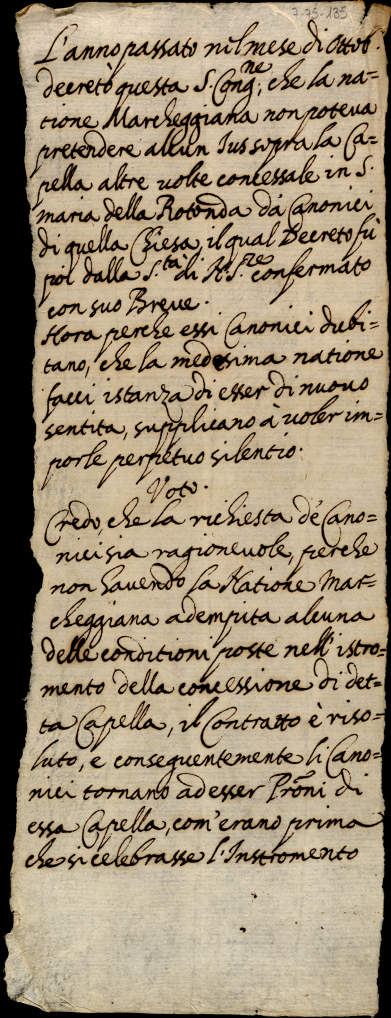 7-75-135
L'anno passato nel mese di Ottob.
decretò questa S. Cong.ne, che la na=
tione Marcheggiana non poteva
pretendere alcun Ius sopra la Ca=
pella altre volte concessale in S.
maria della Rotonda dà Canonici
di quella Chiesa, il qual Decreto fù
poi dalla S.tà di N. S.re confermato
con suo Breve.
Hora perche essi Canonici dubi=
tano, che la medesima natione
facci istanza di esser di nuovo
sentita, supplicano à voler im=
porle perpetuo silentio.
Voto.
Credo, che la richiesta de' Cano=
nici sia ragionevole, perche
non havendo la Natione Mar=
cheggiana adempita alcuna
delle conditioni poste nell'istro=
mento della concessione di det=
ta Capella, il Contratto è riso=
luto, e conseguentemente li Cano=
nici tornano ad esser Proni di
essa Capella, com'erano prima
che si celebrasse l'Instromento